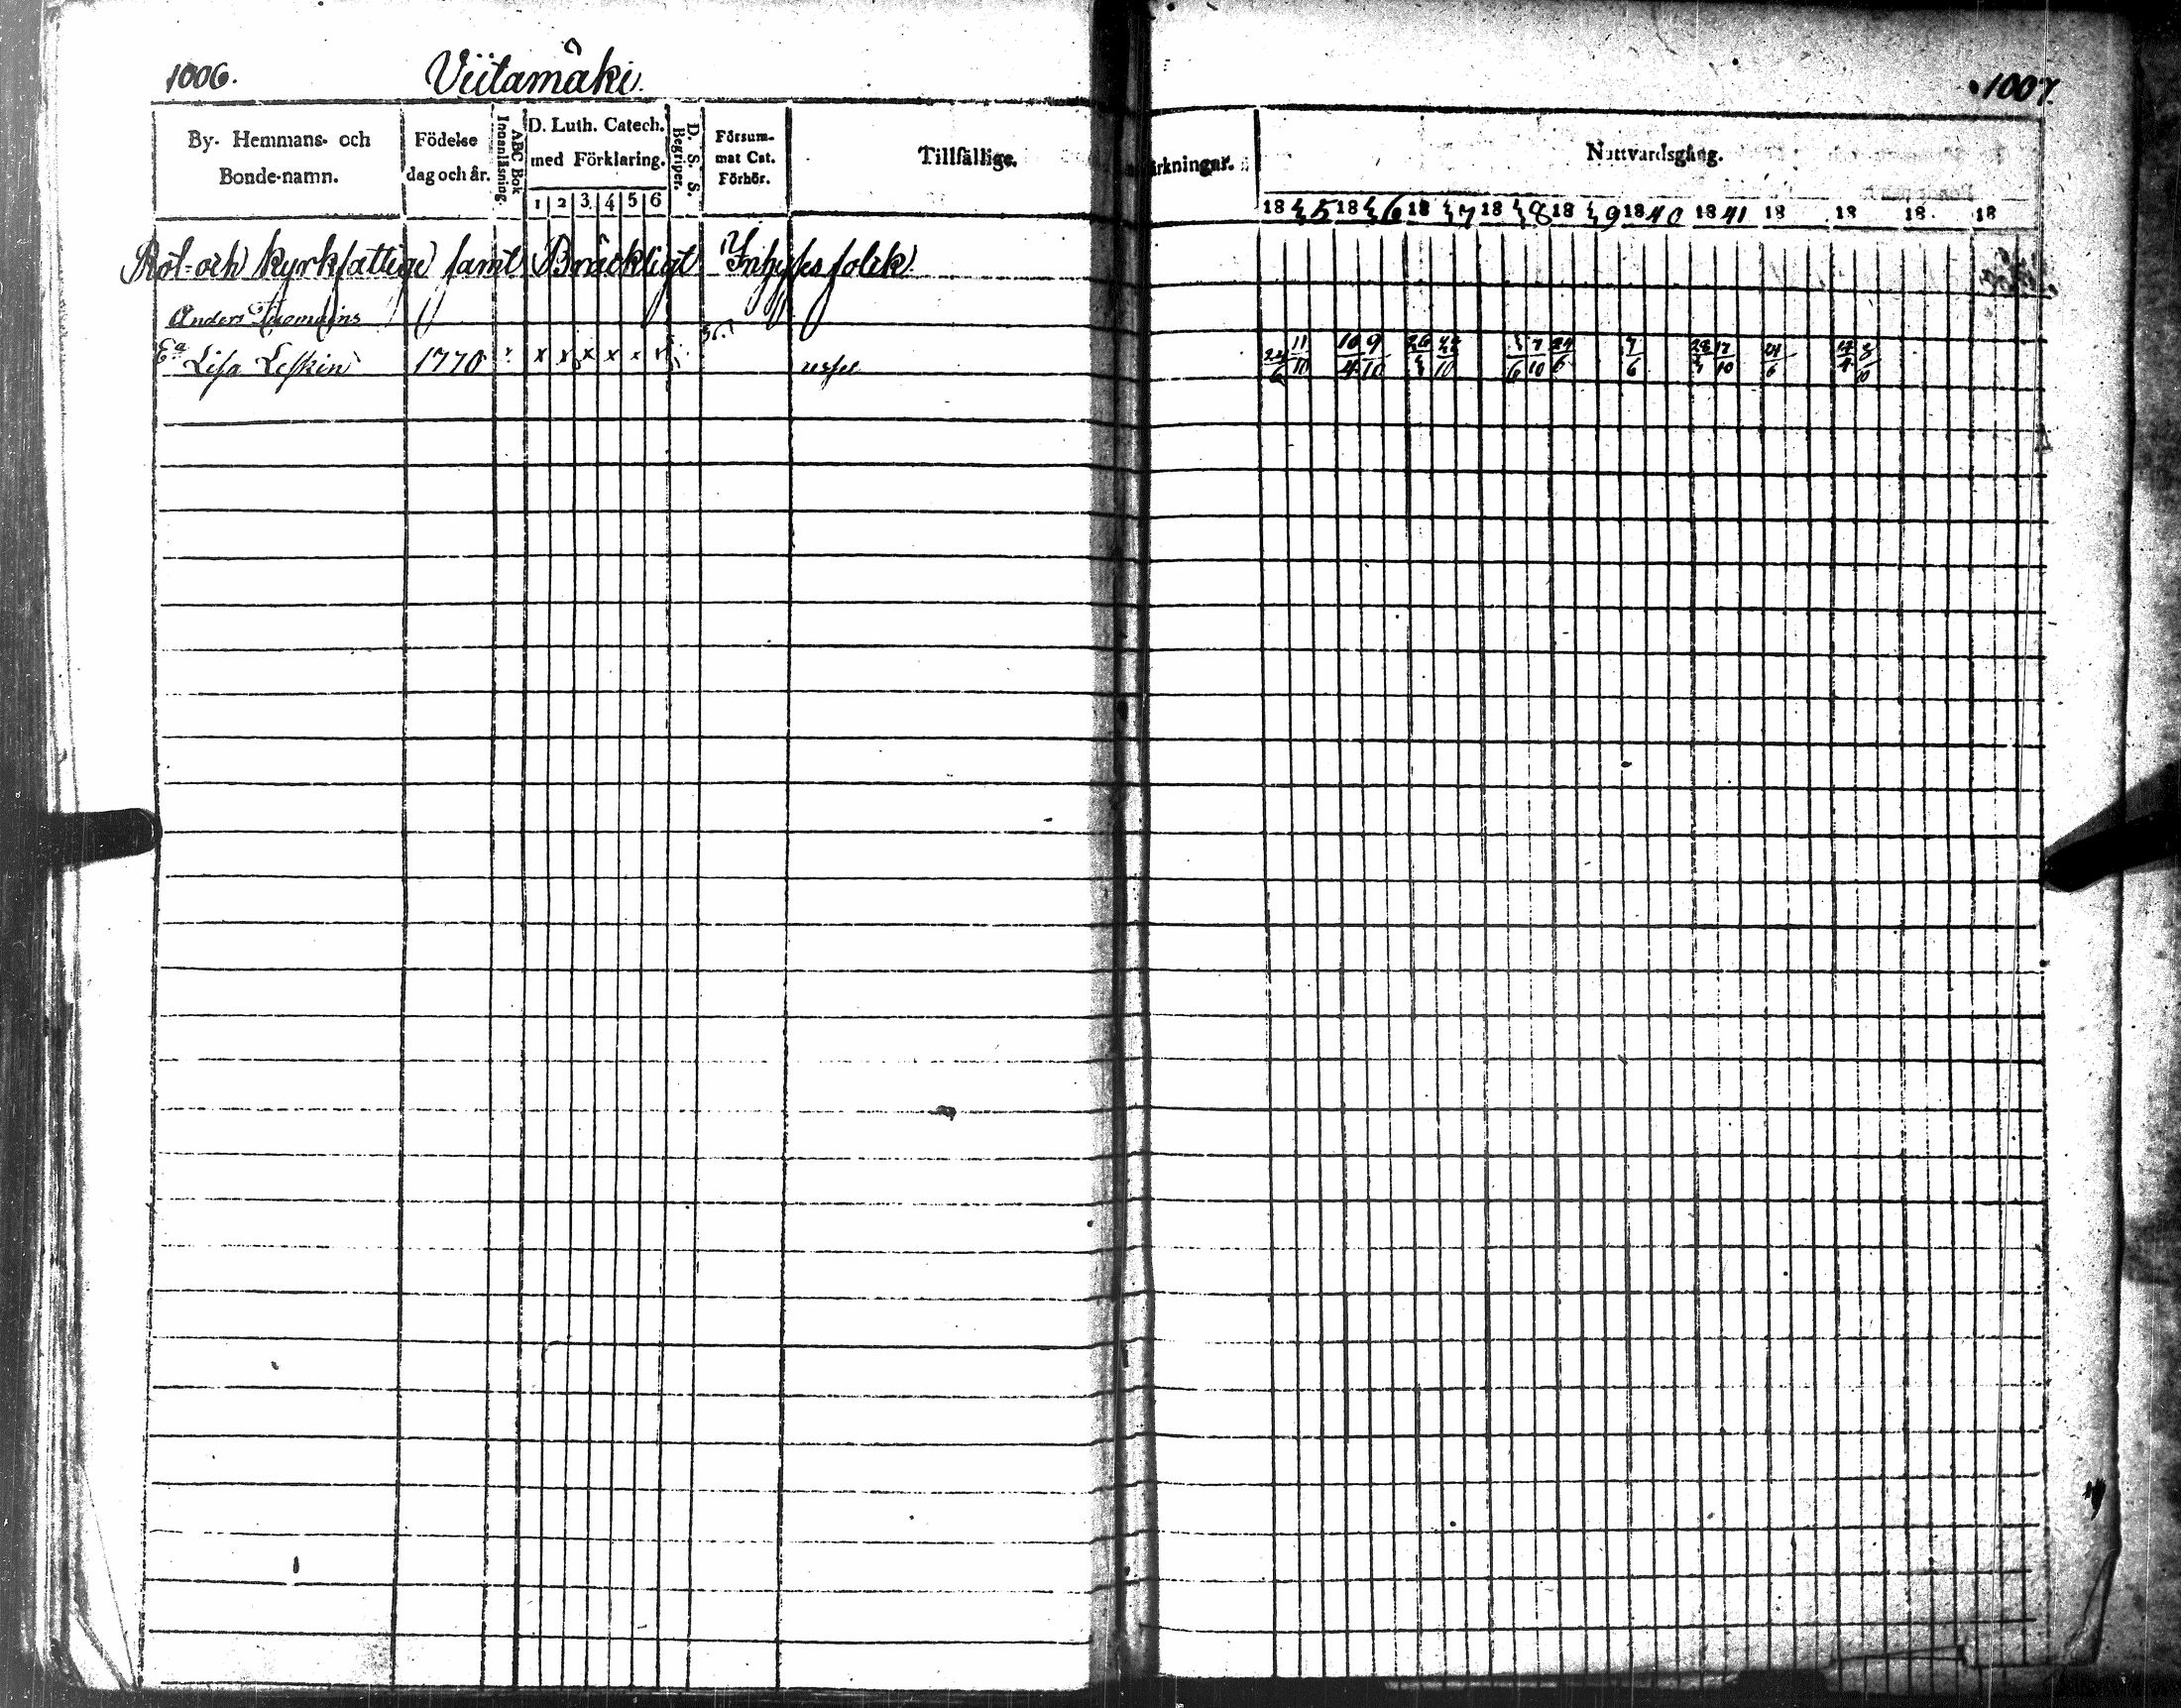 1006. Viitamäki.
By- Hemmans- och Bonde-namn.
Födelse dag och år.
ABC Bok Innanläsning.
D. Luth. Catech. med Förklaring.
1 2 3 4 5 6
D. S. S. Begriper.
Försum- mat Cat. Förhör.
Tillfällige.
Rot- och kyrkfattige samt Bräckligt Inhyses folck
Anders Tuomains
Ea Lisa Leskin 1770 x x x x x
1007.
ärkningar.
Nattvardsgång.
18 35 18 36 18 37 18 38 18 39 18 40 18 41 18 18 18 18
24/6 11/10 10/4 9/10 26/3 22/10 3/6 7/10 24/6 7/6 28/3 17/10